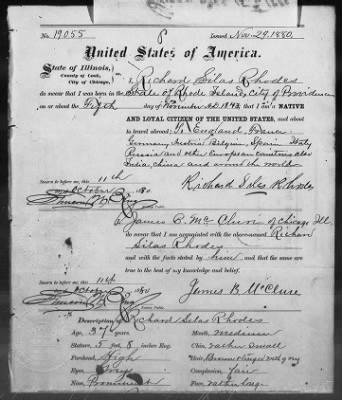 No. 19055 Issued Nov. 29. 1880.
United States of America.
State of Illinois,
County of Cook,
City of Chicago,
I, Richard Silas Rhodes
do swear that I was born in the State of Rhode Island, City of Providence
on or about the Fifth day of November A.D. 1842, that I am a NATIVE
AND LOYAL CITIZEN OF THE UNITED STATES, and about
to travel abroad, To England, France
Germany, Austria, Belgium, Spain Italy
Russia and other European countries also
India, China and around the world
Sworn to before me, this 11th
October 1880
Richard Silas Rhodes
Notary Public.
I, James B. McClure of Chicago Ill.
do swear that I am acquainted with the above-named Richard
Silas Rhodes
and with the facts stated by him, and that the same are
true to the best of my knowledge and belief.
Sworn to before me, this 11th
October 1880
James B. McClure
Notary Public.
Description of Richard Silas Rhodes
Age, 37 years Mouth, medium
Stature, 5 feet, 8 inches Eng. Chin, rather small
Forehead, High Hair,
Eyes, Grey Complexion, Fair
Nose, Prominent Face, rather large